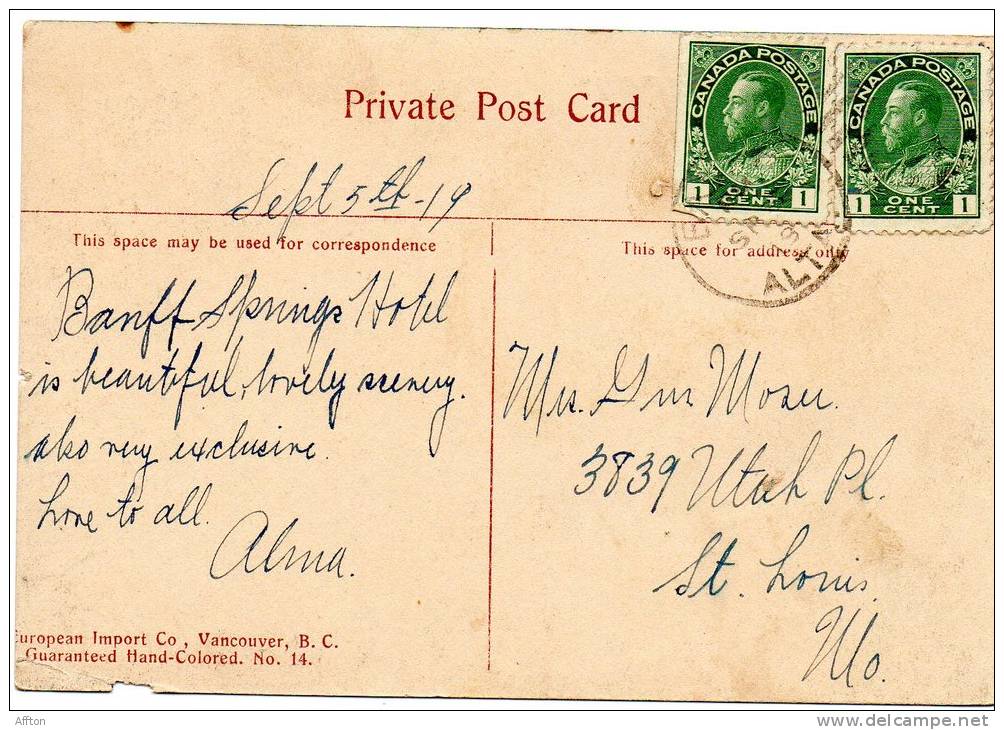 Private Post Card
CANADA POSTAGE
1 ONE CENT 1
CANADA POSTAGE
1 ONE CENT 1
Sept 5th-19
This space may be used for correspondence
This space for address only
ALTA
Banff Springs Hotel
is beautiful, lovely scenery.
also very exclusive.
Love to all.
Alma.
Mrs. Gus Moser.
3839 Utah Pl.
St. Louis.
Mo.
European Import Co, Vancouver, B. C.
Guaranteed Hand-Colored. No. 14.
Afton
www.delcampe.net